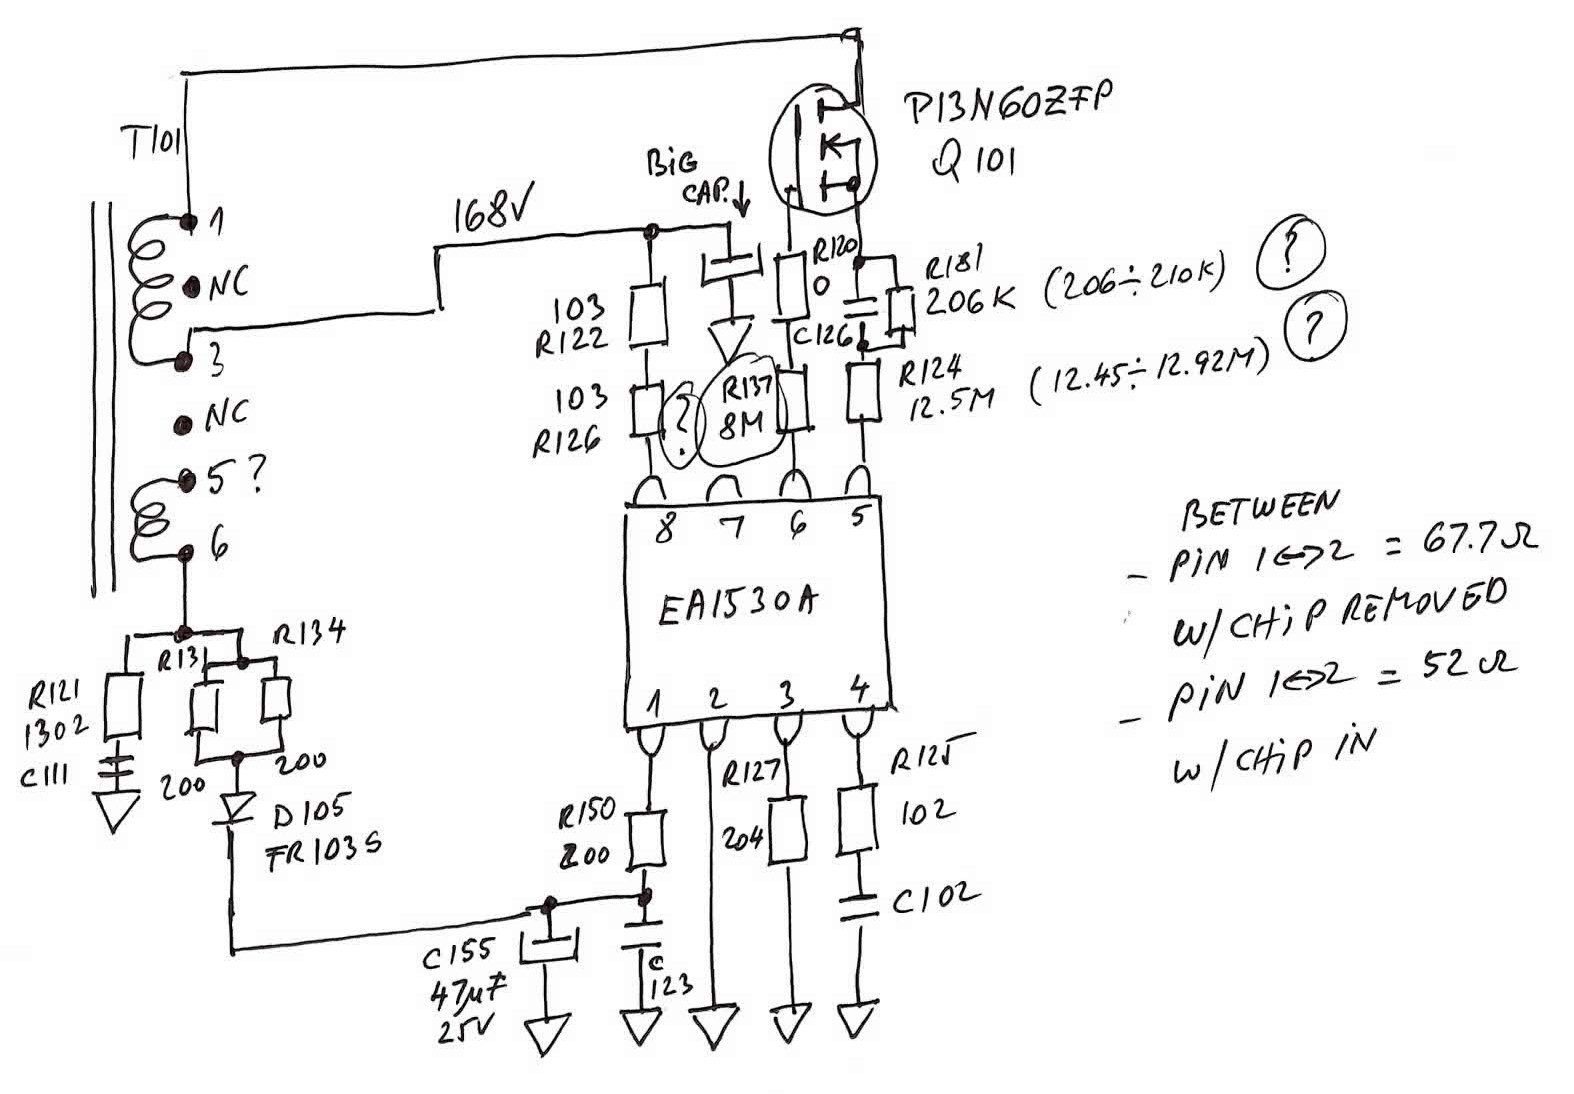 T101
1
NC
3
NC
5 ?
6
168V
BiG
CAP.
P13N60ZFP
Q101
R120
0
R181
206K (206÷210K) ?
C126
R124
12.5M (12.45÷12.92M) ?
103
R122
103
R126
?
R137
8M
8 7 6 5
EA1530A
1 2 3 4
BETWEEN
- PiN 1<->2 = 67.7Ω
W/CHiP REMOVED
- PiN 1<->2 = 52Ω
W/CHiP iN
R131
R134
R121
1302
C111
200
200
D105
FR103S
R150
200
R127
204
R125
102
C102
C155
47µF
25V
C
123